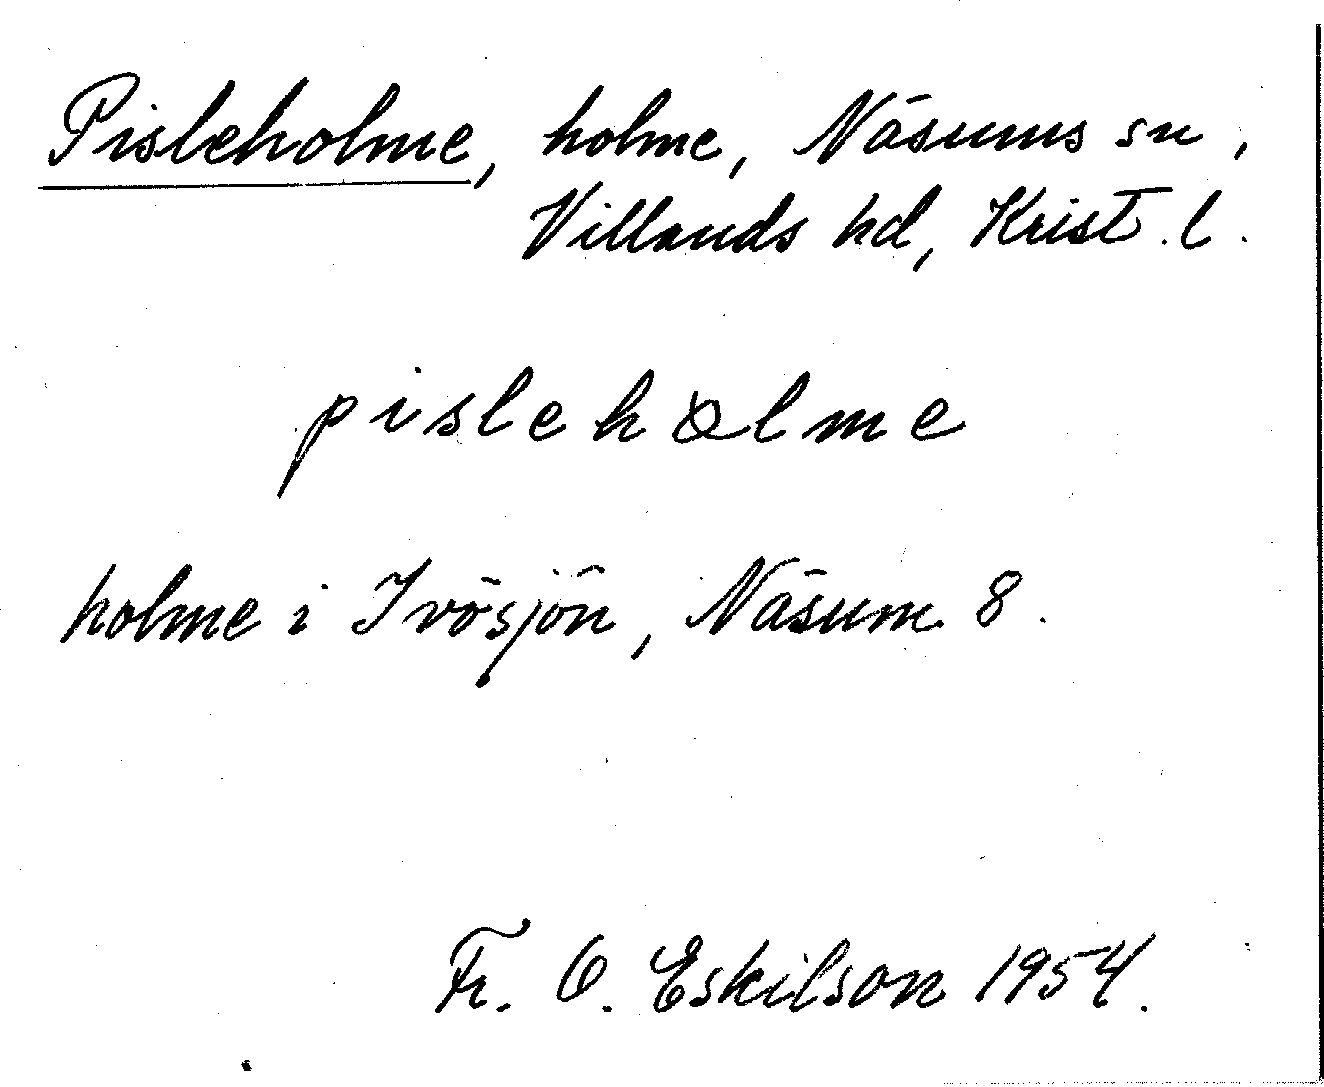 Pisleholme, holme, Näsums sn,
Villands hd, Krist. l.
pisleholme
holme i Ivösjön, Näsum 8.
Fr. O. Eskilson 1954.